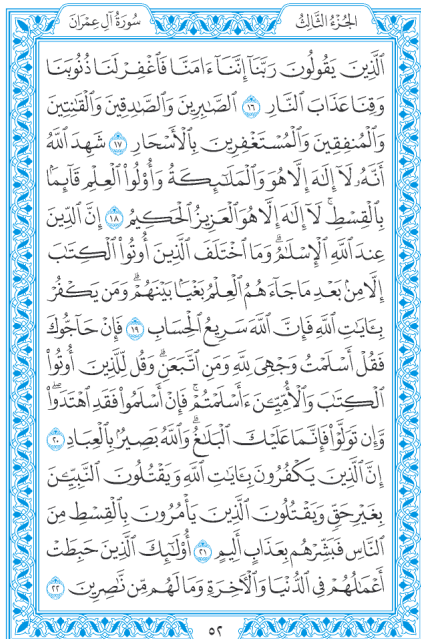 الجُزْءُ الثَّالِثُ
سُورَةُ آلِ عِمْرَانَ
ٱلَّذِينَ يَقُولُونَ رَبَّنَآ إِنَّنَآ ءَامَنَّا فَٱغْفِرْ لَنَا ذُنُوبَنَا
وَقِنَا عَذَابَ ٱلنَّارِ ١٦ ٱلصَّٰبِرِينَ وَٱلصَّٰدِقِينَ وَٱلْقَٰنِتِينَ
وَٱلْمُنفِقِينَ وَٱلْمُسْتَغْفِرِينَ بِٱلْأَسْحَارِ ١٧ شَهِدَ ٱللَّهُ
أَنَّهُۥ لَآ إِلَٰهَ إِلَّا هُوَ وَٱلْمَلَٰٓئِكَةُ وَأُو۟لُوا۟ ٱلْعِلْمِ قَآئِمًۢا
بِٱلْقِسْطِۚ لَآ إِلَٰهَ إِلَّا هُوَ ٱلْعَزِيزُ ٱلْحَكِيمُ ١٨ إِنَّ ٱلدِّينَ
عِندَ ٱللَّهِ ٱلْإِسْلَٰمُۗ وَمَا ٱخْتَلَفَ ٱلَّذِينَ أُوتُوا۟ ٱلْكِتَٰبَ
إِلَّا مِنۢ بَعْدِ مَا جَآءَهُمُ ٱلْعِلْمُ بَغْيًۢا بَيْنَهُمْۗ وَمَن يَكْفُرْ
بِـَٔايَٰتِ ٱللَّهِ فَإِنَّ ٱللَّهَ سَرِيعُ ٱلْحِسَابِ ١٩ فَإِنْ حَآجُّوكَ
فَقُلْ أَسْلَمْتُ وَجْهِىَ لِلَّهِ وَمَنِ ٱتَّبَعَنِۗ وَقُل لِّلَّذِينَ أُوتُوا۟
ٱلْكِتَٰبَ وَٱلْأُمِّيِّـۧنَ ءَأَسْلَمْتُمْۚ فَإِنْ أَسْلَمُوا۟ فَقَدِ ٱهْتَدَوا۟ۖ
وَّإِن تَوَلَّوْا۟ فَإِنَّمَا عَلَيْكَ ٱلْبَلَٰغُۗ وَٱللَّهُ بَصِيرٌۢ بِٱلْعِبَادِ ٢٠
إِنَّ ٱلَّذِينَ يَكْفُرُونَ بِـَٔايَٰتِ ٱللَّهِ وَيَقْتُلُونَ ٱلنَّبِيِّـۧنَ
بِغَيْرِ حَقٍّ وَيَقْتُلُونَ ٱلَّذِينَ يَأْمُرُونَ بِٱلْقِسْطِ مِنَ
ٱلنَّاسِ فَبَشِّرْهُم بِعَذَابٍ أَلِيمٍ ٢١ أُو۟لَٰٓئِكَ ٱلَّذِينَ حَبِطَتْ
أَعْمَٰلُهُمْ فِى ٱلدُّنْيَا وَٱلْأَخِرَةِ وَمَا لَهُم مِّن نَّٰصِرِينَ ٢٢
٥٢